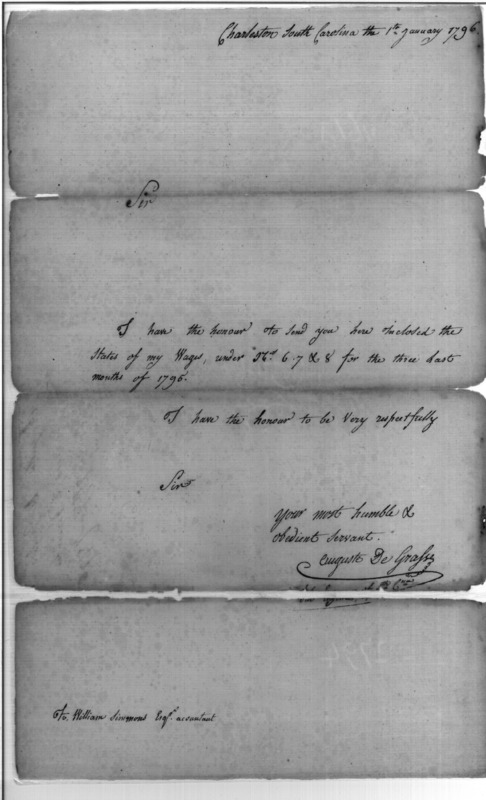 Charleston South Carolina the 1th January 1796
Sir
I have the honour to Send you here inclosed the
States of my Wages, under Nos 6. 7 & 8 for the three last
months of 1795.
I have the honour to be Very respectfully
Sir
your most humble &
obedient Servant.
Auguste De Grasse
To. William Simmons Esqr. acountant